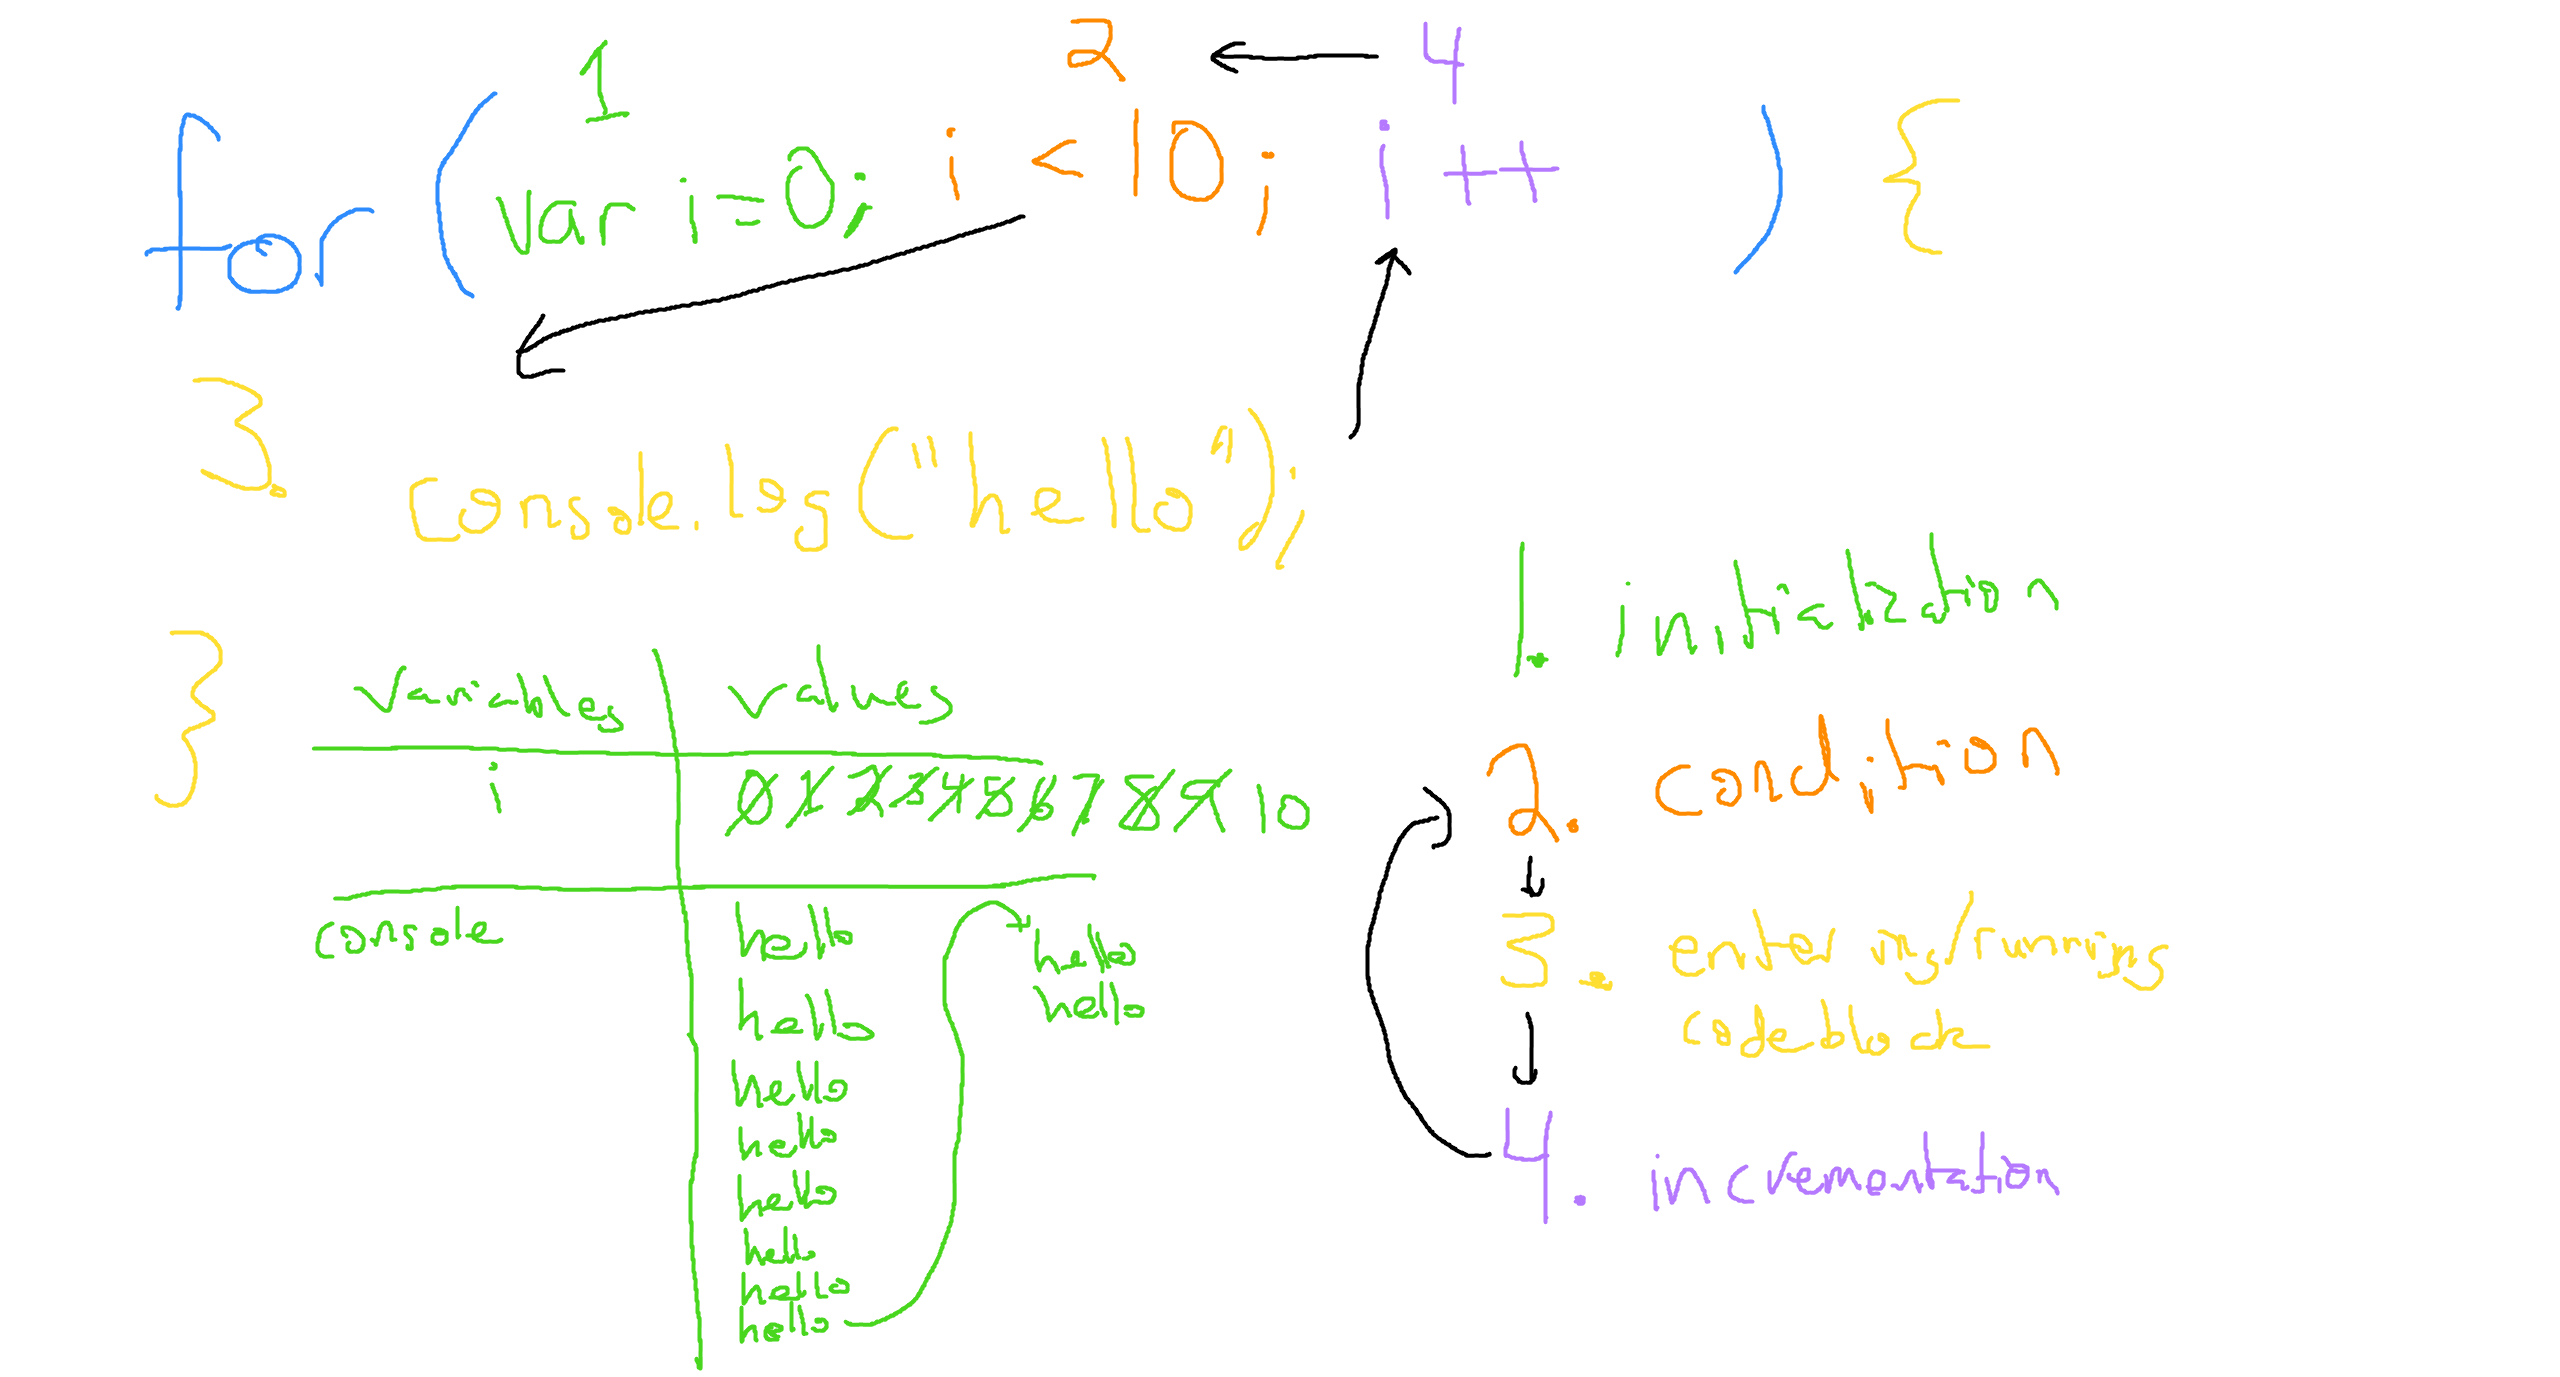 1 2 4
for ( var i=0; i < 10; i ++ ) {
3. console.log("hello");
}
variables values
i 0 1 2 3 4 5 6 7 8 9 10
console hello
hello
hello
hello
hello
hello
hello
hello
hello
hello
1. initialization
2. condition
3. entering/running
codeblock
4. incrementation